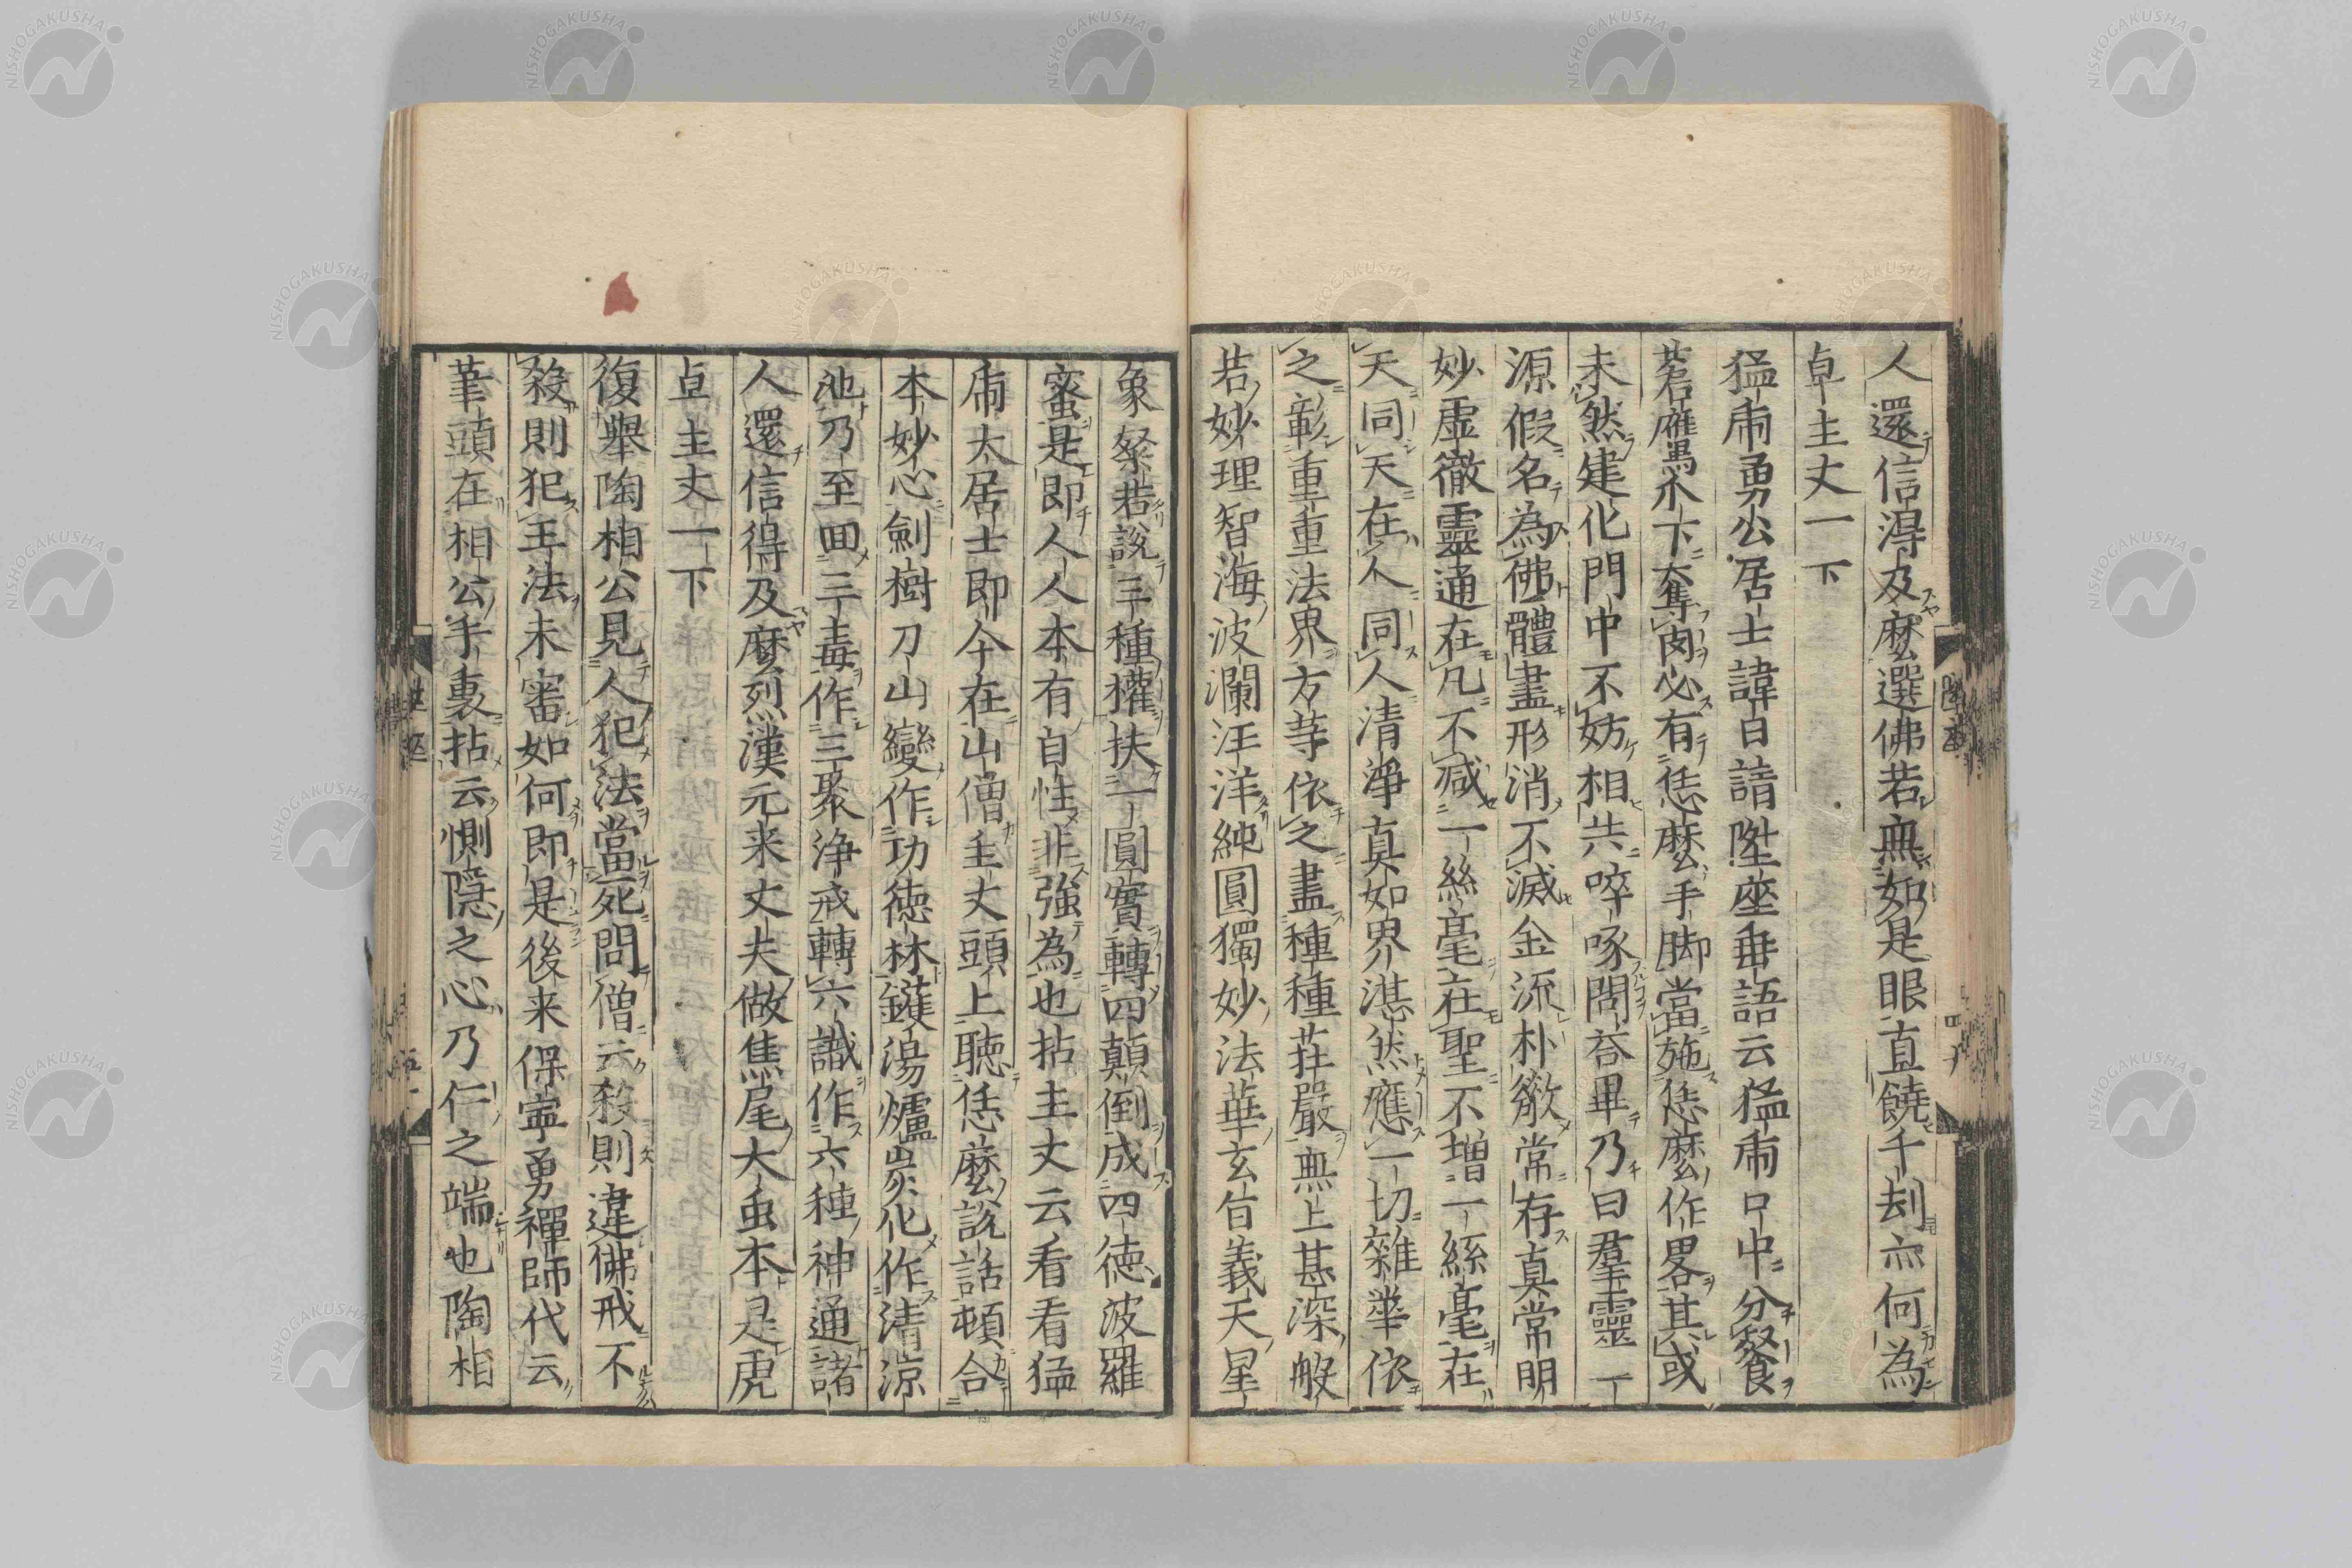 人還信得及麽選佛若無如是眼直饒千刼亦何為
卓主丈一下
猛虎勇公居士諱日請陞座垂語云猛虎口中分餐
蒼鷹爪下奪肉必有恁麽手脚當施恁麽作畧其或
未然建化門中不妨相共啐啄問荅畢乃曰羣靈一
源假名為佛體盡形消不滅金流朴散常存真常明
妙虚徹靈通在凡不減一絲毫在聖不増一絲毫在
天同天在人同人清淨真如界湛然應一切雜華依
之彰重重法界方等依之盡種種莊嚴無上甚深般
若妙理智海波瀾汪洋純圓獨妙法華玄旨義天星
象祭若說三種權扶一圓實轉四顛倒成四徳波羅
蜜是即人人本有自性非強為也拈主丈云看看猛
虎太居士即今在山僧主丈頭上聴恁麽說話頓合
本妙心劍樹刀山變作功徳林鑊湯爐炭化作清凉
池乃至回三毒作三聚浄戒轉六識作六種神通諸
人還信得及麽烈漢元来丈夫做焦尾大虫本是虎
卓主丈一下
復舉陶相公見人犯法當死問僧云殺則違佛戒不
殺則犯王法未審如何即是後来保寧勇禪師代云
筆頭在相公手裏拈云惻隠之心乃仁之端也陶相